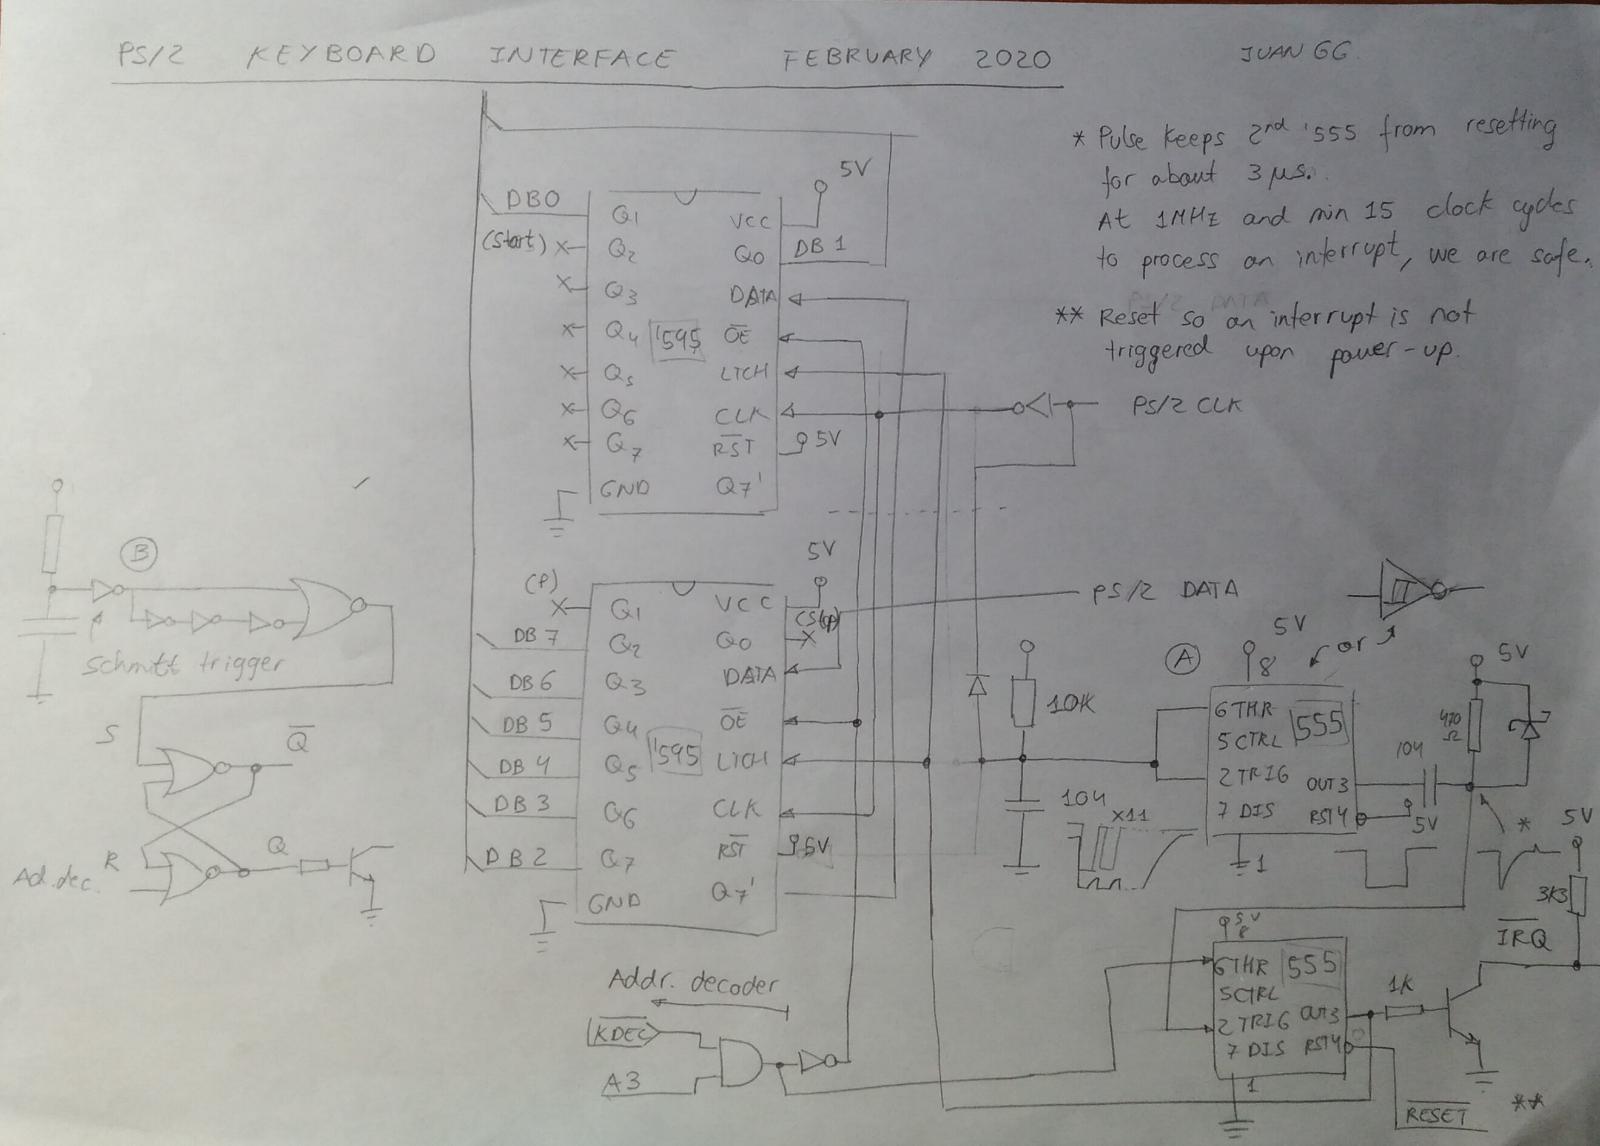 PS/2 KEYBOARD INTERFACE FEBRUARY 2020 JUAN GG.
* Pulse keeps 2nd '555 from resetting
for about 3 µs.
At 1MHz and min 15 clock cycles
to process an interrupt, we are safe.
** Reset so an interrupt is not
triggered upon power-up.
5V
DB0
Q1
VCC
(Start) X
Q2
Q0
DB 1
X
Q3
DATA
X
Q4
'595
OE
X
Q5
LTCH
X
Q6
CLK
PS/2 CLK
X
Q7
RST
5V
GND
Q7'
5V
(P)
X
Q1
VCC
(Stop)
PS/2 DATA
DB 7
Q2
Q0
X
DB 6
Q3
DATA
DB 5
Q4
OE
DB 4
Q5
'595
LTCH
DB 3
Q6
CLK
DB 2
Q7
RST
5V
GND
Q7'
B
Schmitt trigger
S
Q
R
Q
Ad. dec.
Addr. decoder
KDEC
A3
10K
10U
X11
A
5V
or
8
6 THR
555
5 CTRL
2 TRIG
OUT 3
7 DIS
RST 4
5V
1
10U
470
Ω
5V
*
5V
3K3
IRQ
5V
8
6 THR
555
5 CTRL
2 TRIG
OUT 3
7 DIS
RST 4
1
1K
RESET
**